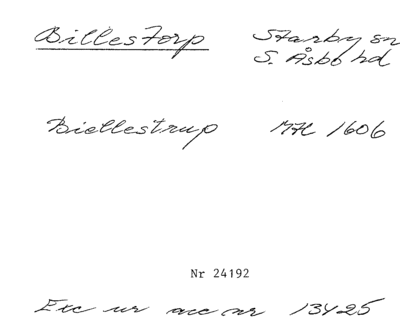 Billestorp Starby sn
S. Åsbo hd
Biellestrup MH 1606
Nr 24192
Exc ur acc nr 13425